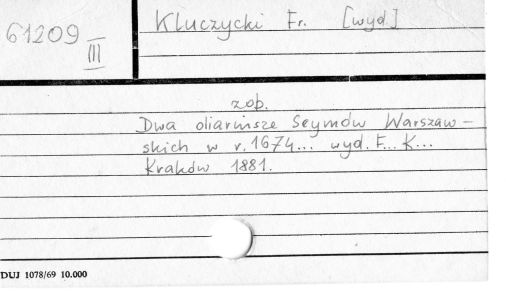 61209
III
Kluczycki Fr. [wyd]
zob.
Dwa diariusze Seymów Warszaw-
skich w r. 1674... wyd. F... K...
Kraków 1881.
DUJ 1078/69 10.000